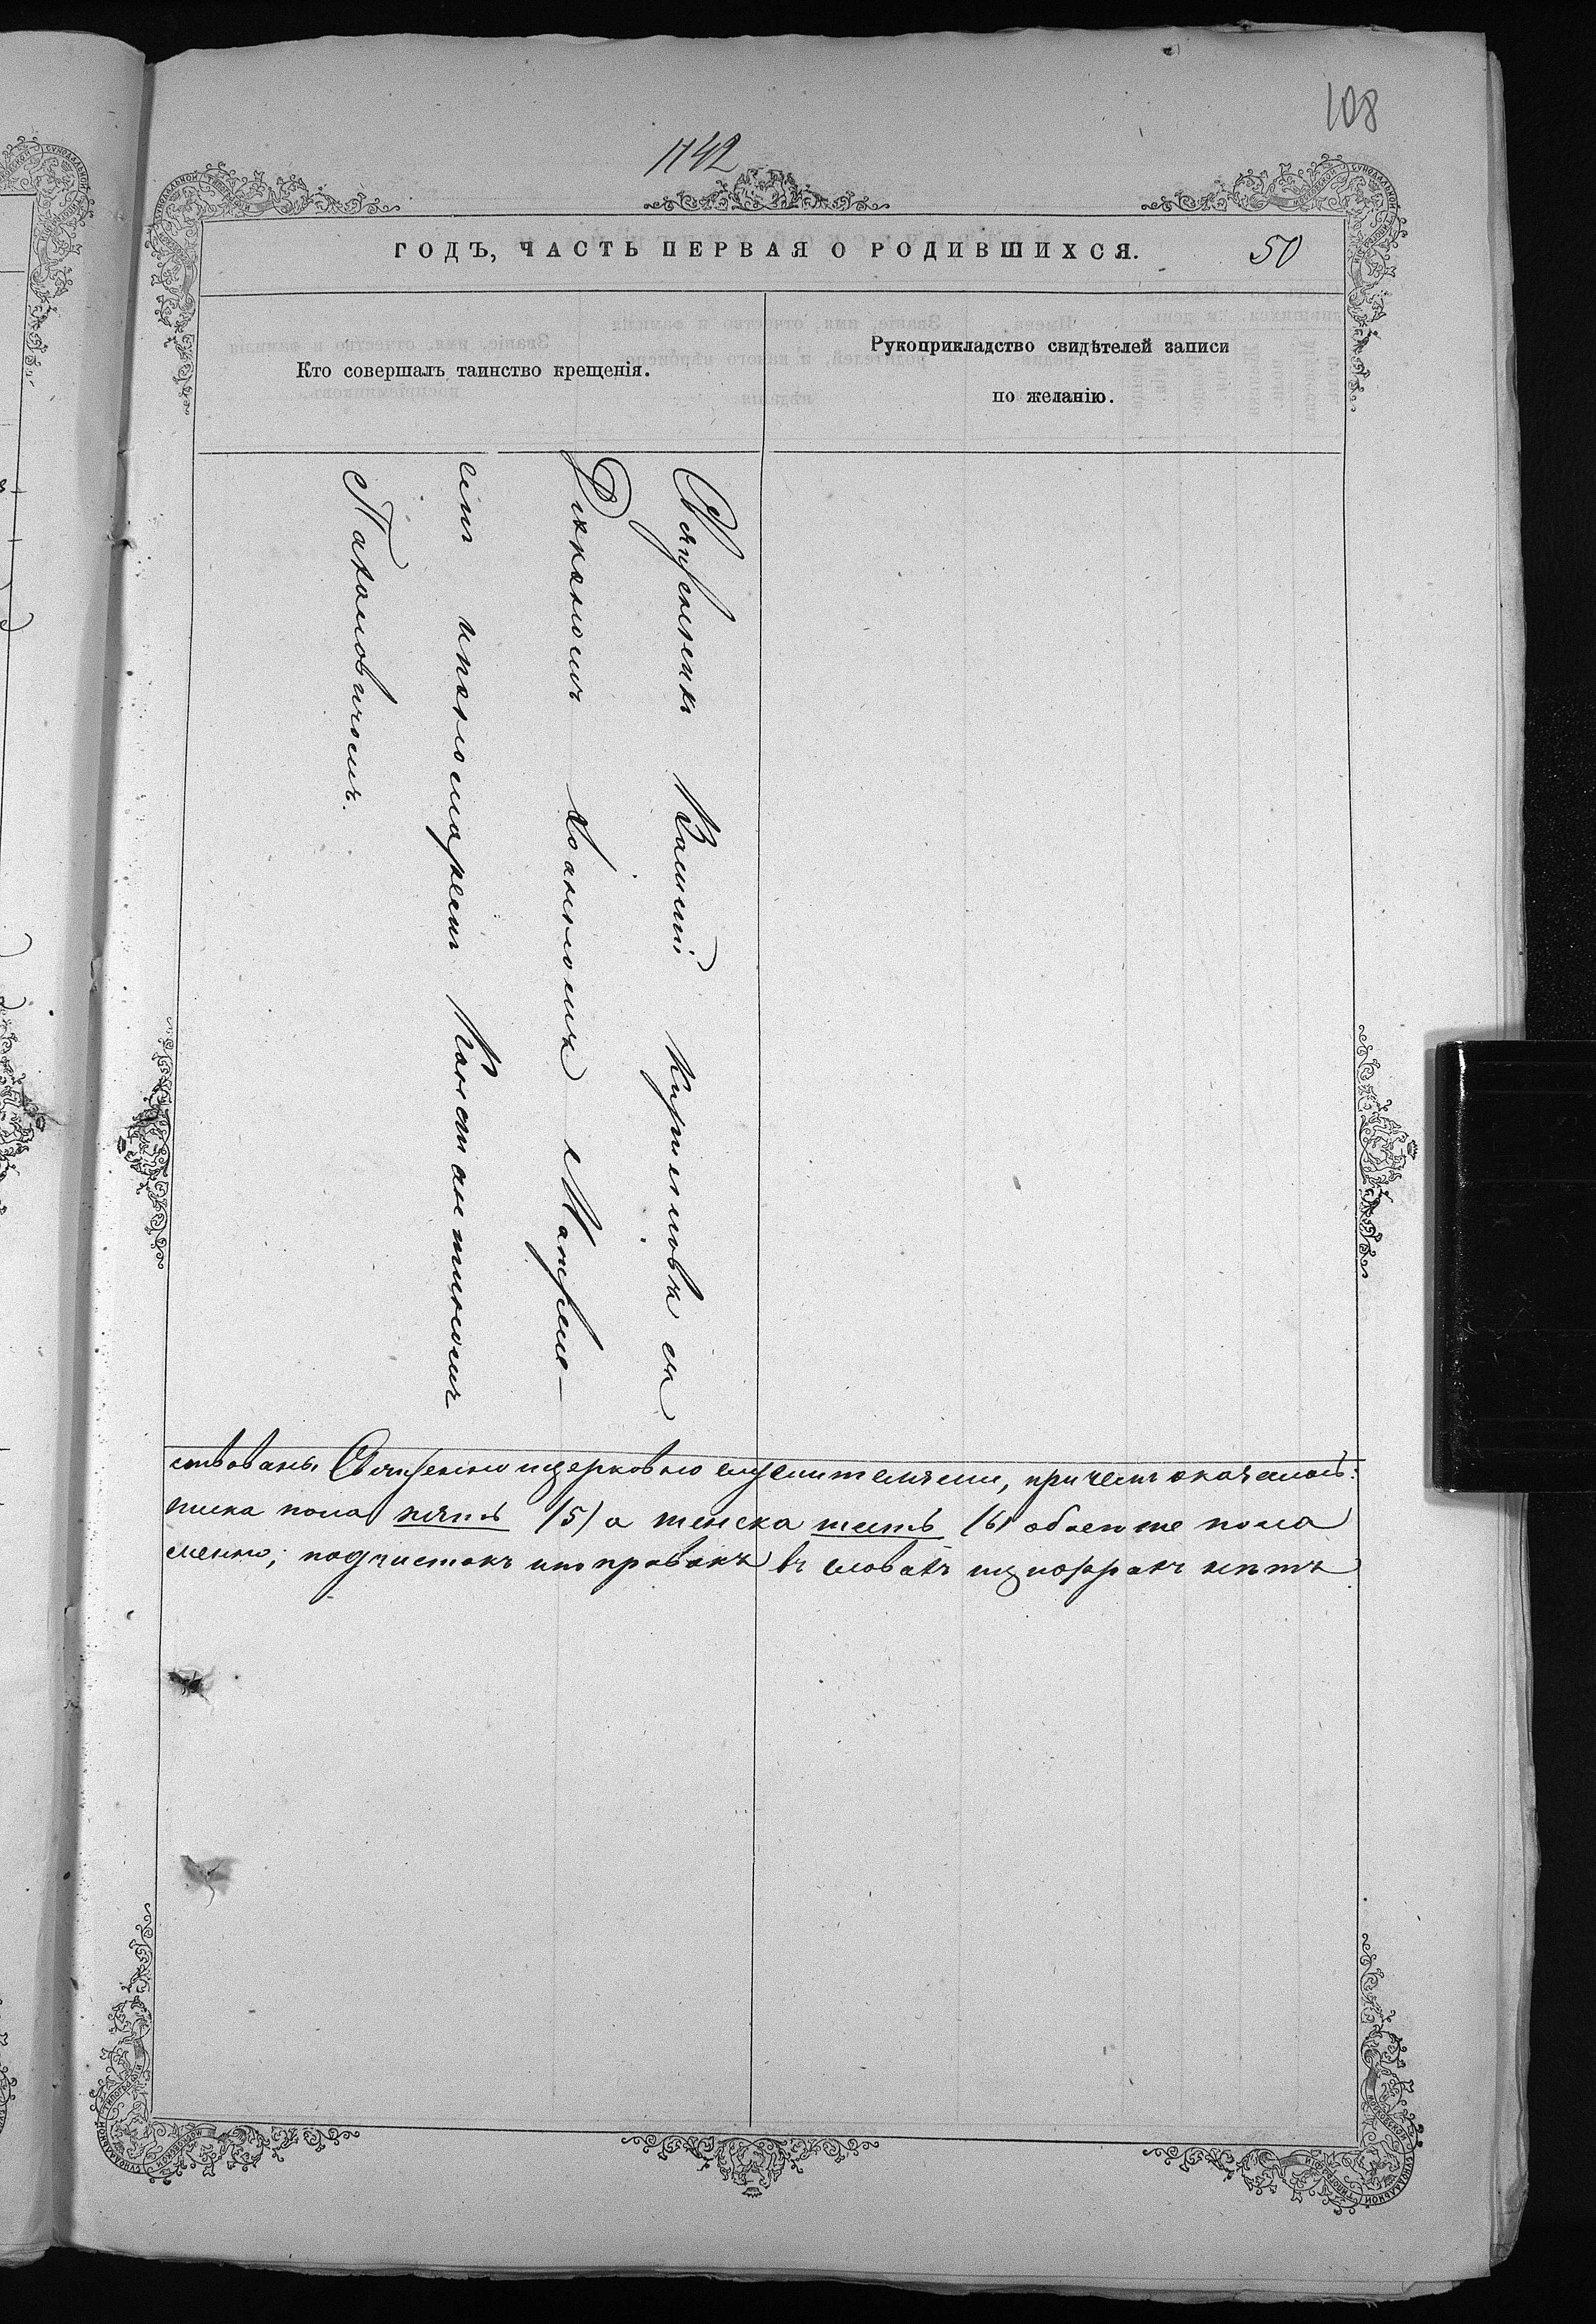 108
1742
ГОДЪ, ЧАСТЬ ПЕРВАЯ О РОДИВШИХСЯ.
50
Кто совершалъ таинство крещенія.
Рукоприкладство свидѣтелей записи
по желанію.
Священникъ Василій Кирилловъ съ
Діакономъ Іоанномъ
симъ и пономаремъ Константиномъ
Пахомовичомъ.
ствованъ Священно и церковно служителями, при чемъ оказалось:
жиска пола пять /5/ а женска шесть /6/ обоего же пола
менно; подчистокъ и поправокъ въ словахъ и цыфрахъ нѣтъ